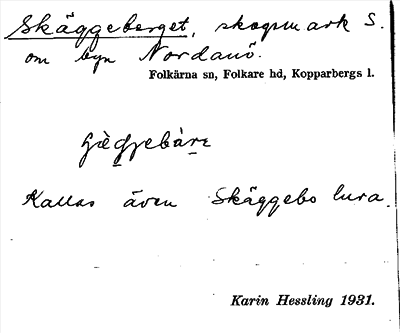 Skäggeberget, skogsmark S.
om byn Nordanö.
Folkärna sn, Folkare hd, Kopparbergs l.
Kallas även Skäggebo lura.
Karin Hessling 1931.